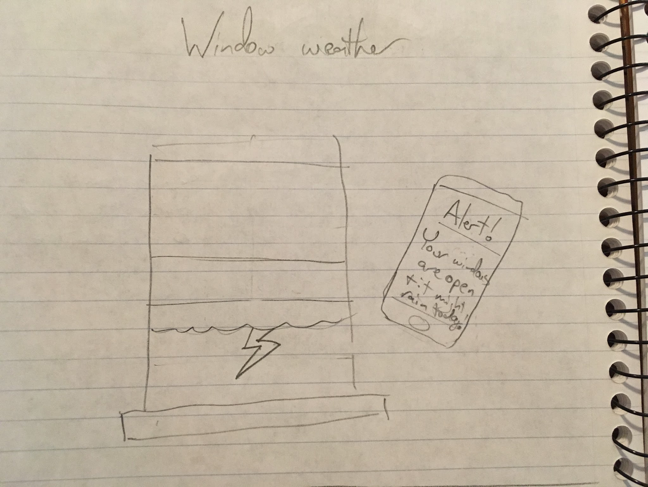 Window weather
Alert!
Your windows
are open
+ it might
rain today!